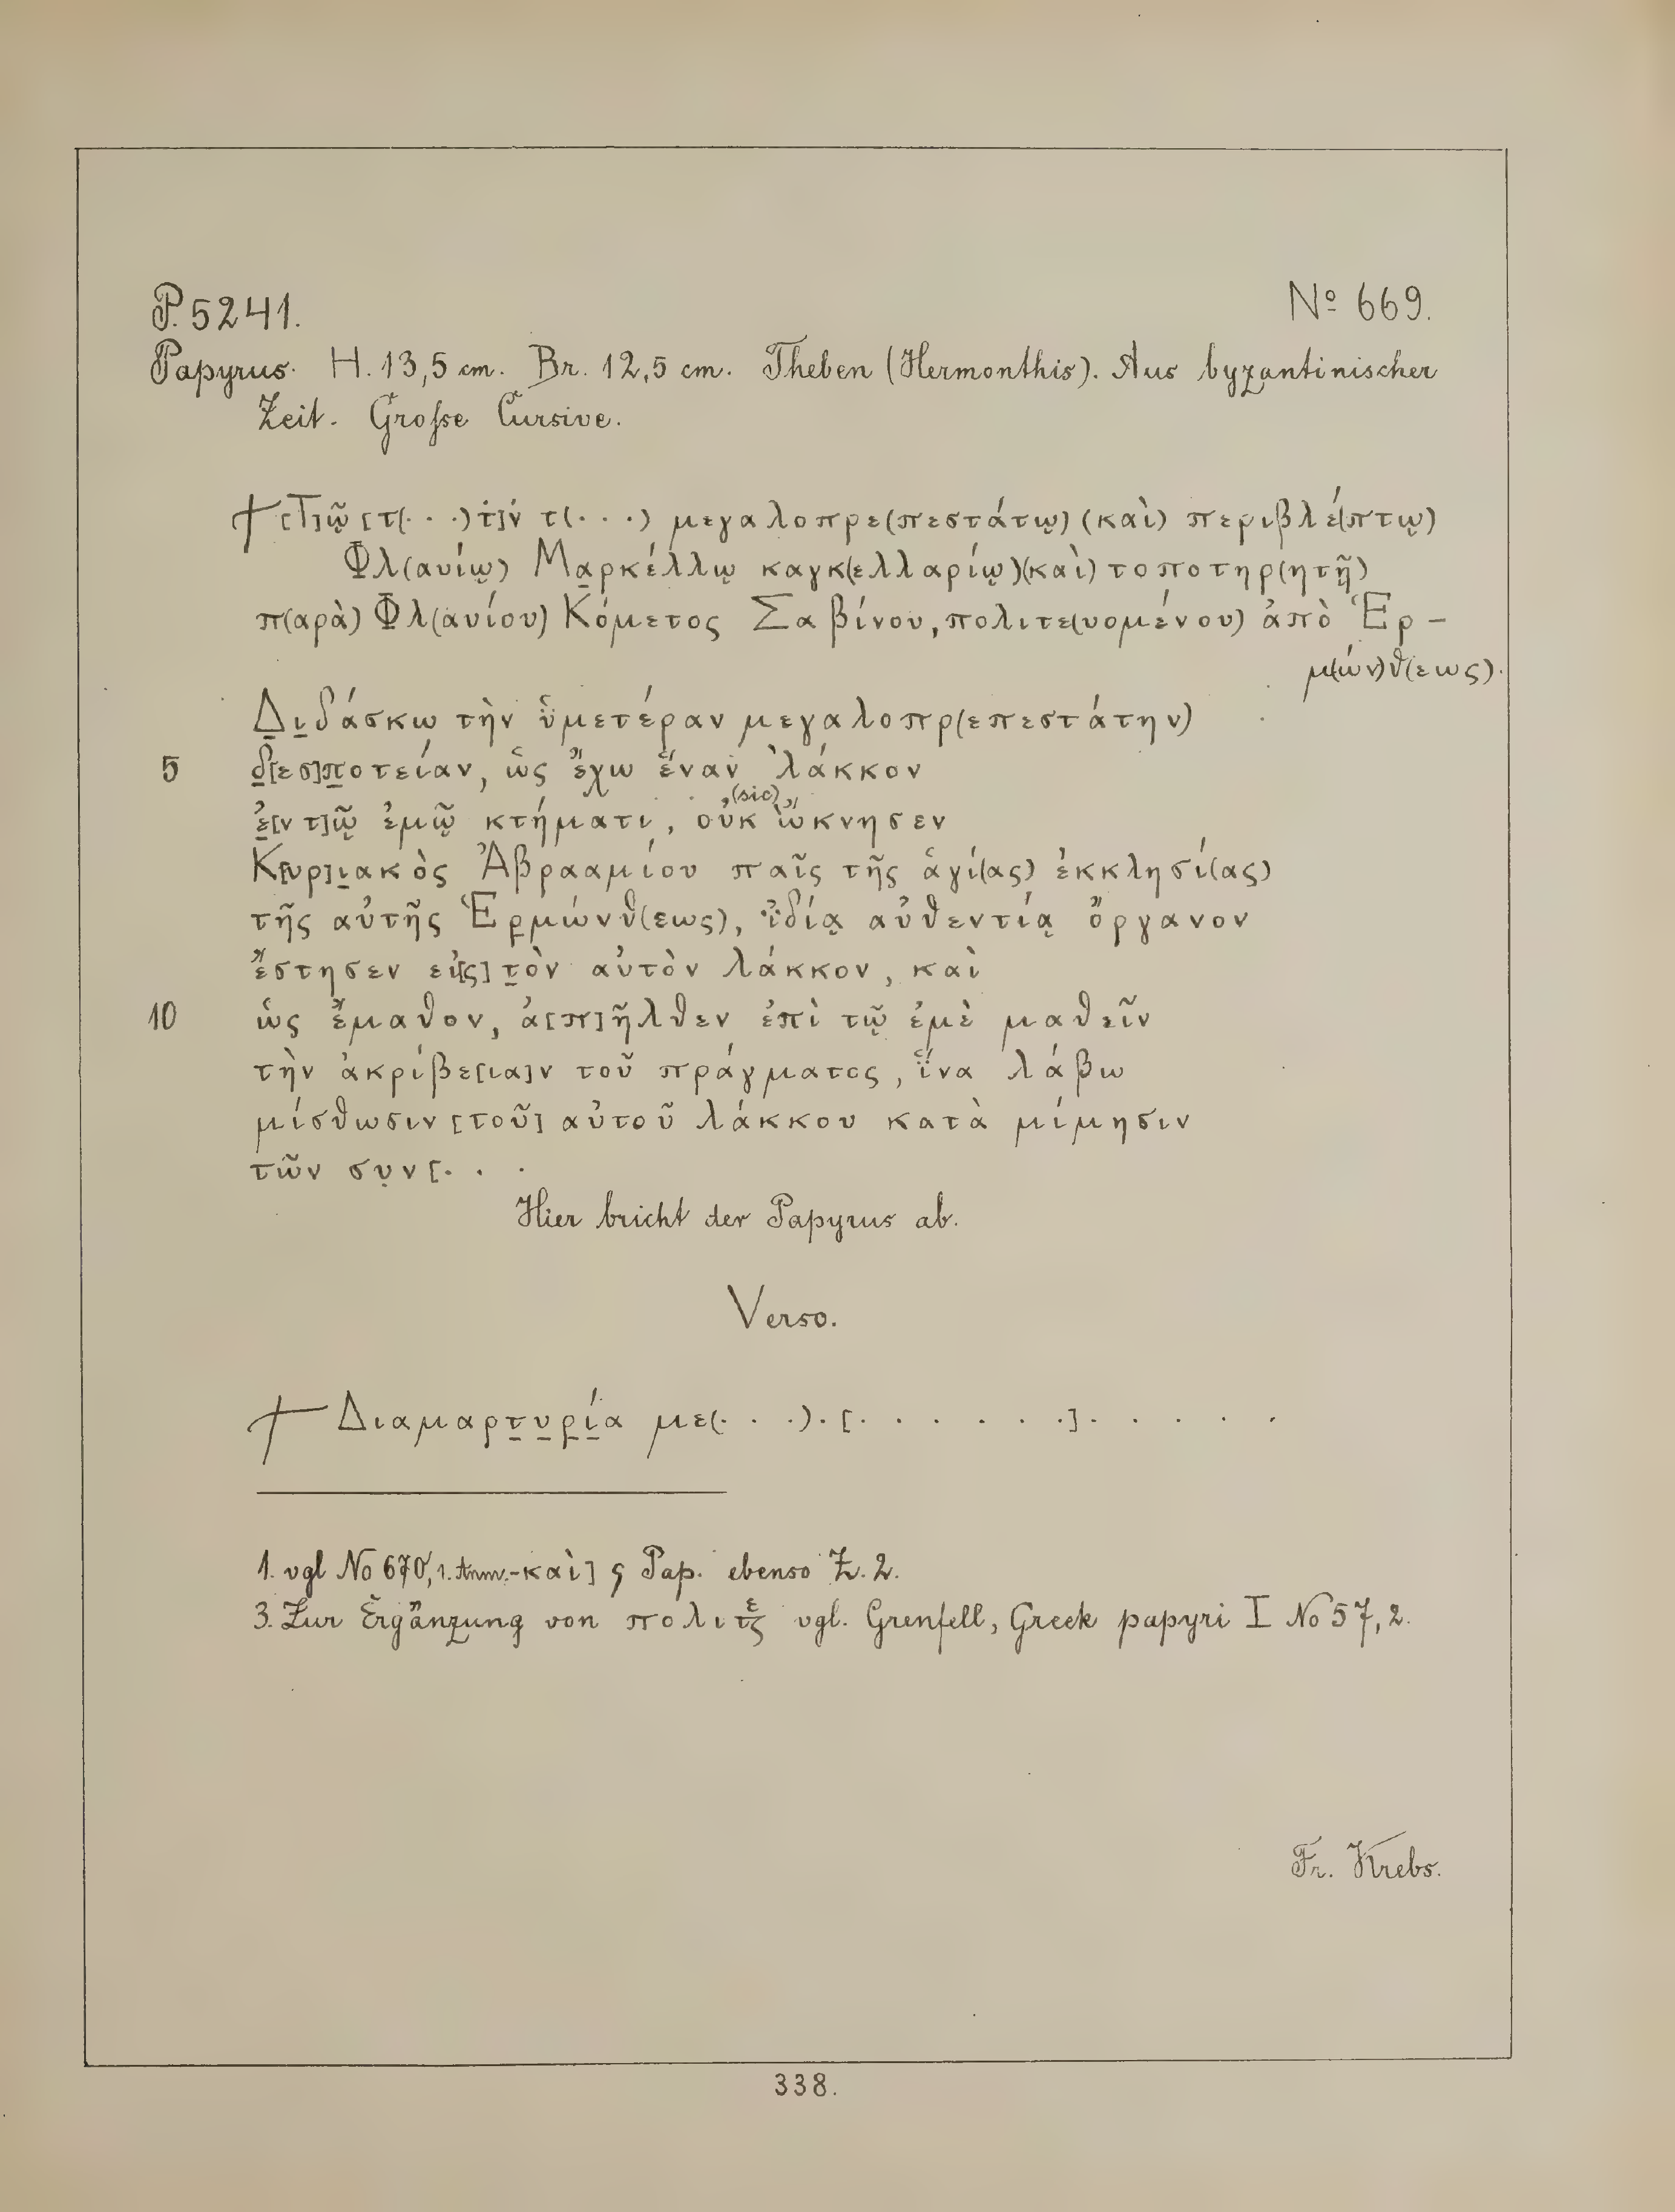 P. 5241.
Nº 669.
Papyrus. H. 13,5 cm. Br. 12,5 cm. Theben (Hermonthis). Aus byzantinischer
Zeit. Grosse Cursive.
† [Τ]ῷ [τ(. . .) τ]ὴν τ(. . .) μεγαλοπρε(πεστάτῳ) (καὶ) περιβλέ(πτῳ)
Φλ(αυίῳ) Μαρκέλλῳ καγκ(ελλαρίῳ) (καὶ) τοποτηρ(ητῇ)
π(αρὰ) Φλ(αυίου) Κόμετος Σαβίνου, πολιτε(υομένου) ἀπὸ Ἑρ-
μ(ών)θ(εως).
Διδάσκω τὴν ὑμετέραν μεγαλοπρ(επεστάτην)
5 δ[εσ]ποτείαν, ὡς ἔχω ἕναν λάκκον
ἐ[ν τ]ῷ ἐμῷ κτήματι, οὐκ (sic) ὤκνησεν
Κ[υρ]ιακὸς Ἀβρααμίου παῖς τῆς ἁγί(ας) ἐκκλησί(ας)
τῆς αὐτῆς Ἑρμώνθ(εως), ἰδίᾳ αὐθεντίᾳ ὄργανον
ἔστησεν εἰ[ς] τὸν αὐτὸν λάκκον, καὶ
10 ὡς ἔμαθον, ἀ[π]ῆλθεν ἐπὶ τῷ ἐμὲ μαθεῖν
τὴν ἀκρίβε[ια]ν τοῦ πράγματος, ἵνα λάβω
μίσθωσιν [τοῦ] αὐτοῦ λάκκου κατὰ μίμησιν
τῶν συν[. . .
Hier bricht der Papyrus ab.
Verso.
† Διαμαρτυρία με(. . .). [. . . . . .]. . . . . .
1. vgl No 670, 1. Anm.-καὶ] ς Pap. ebenso Z. 2.
3. Zur Ergänzung von πολιτε vgl. Grenfell, Greek papyri I No 57, 2.
Fr. Krebs.
338.